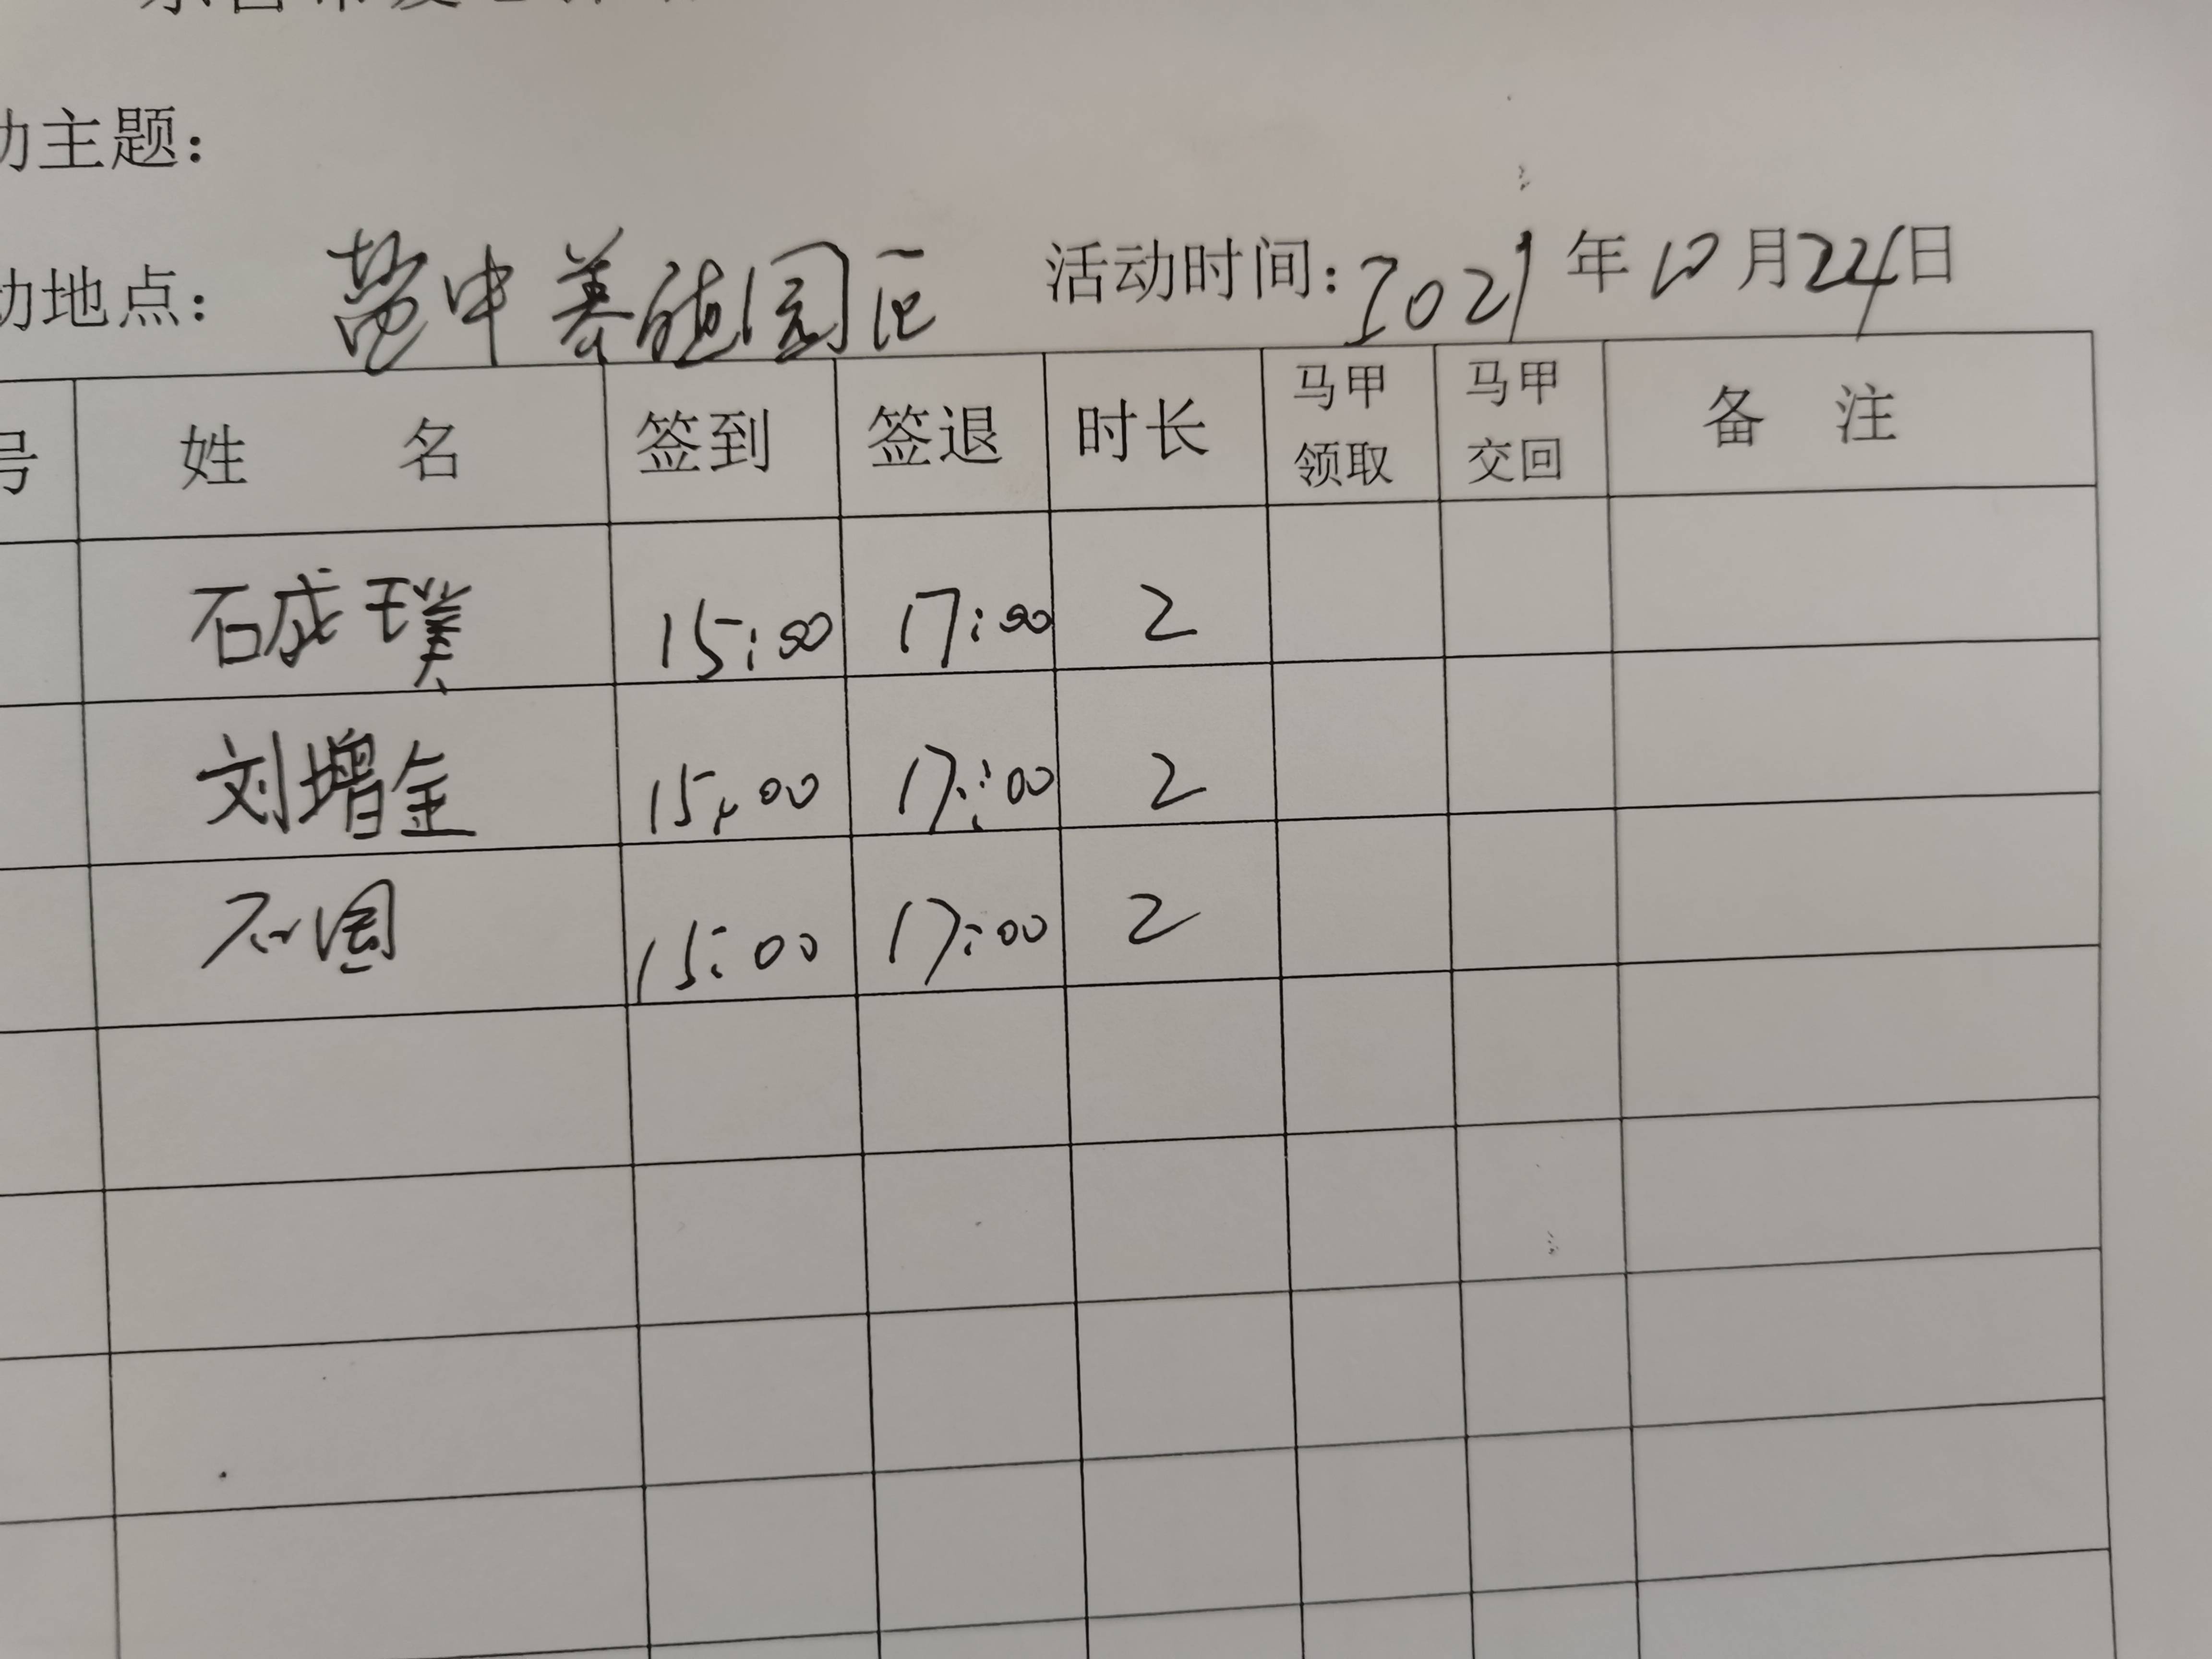 动主题：
动地点： 盐中养殖园区 活动时间：2021年10月24日
号 姓 名 签到 签退 时长 马甲领取 马甲交回 备 注
石成璞 15:00 17:00 2
刘增金 15:00 17:00 2
石国 15:00 17:00 2